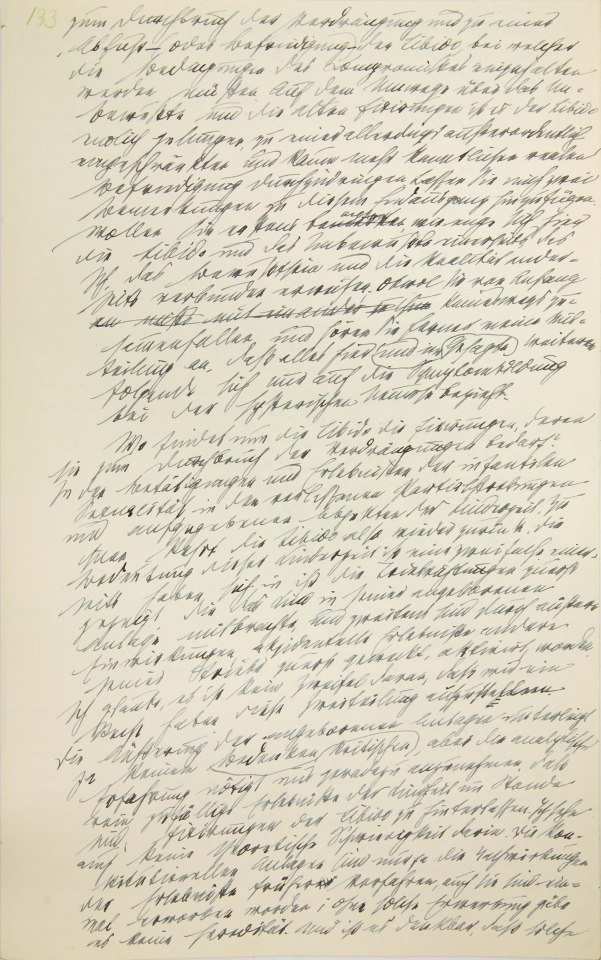 133
zum Durchbruch der Verdrängung und zu einer
Abfuhr – oder Befriedigung – der Libido, bei welcher
die Bedingungen des Kompromisses eingehalten
werden müssen. Auf dem Umwege über das Un-
bewußte und die alten Fixirungen ist es der Libido
endlich gelungen zu einer allerdings außerordentlich
eingeschränkten und kaum mehr kenntlichen realen
Befriedigung durchzudringen. Lassen Sie mich zwei
Bemerkungen zu diesem Endausgang hinzufügen.
Wollen Sie erstens beachten, wie enge sich hier
die Libido und das Unbewußte einerseits, das
Ich, das Bewußtsein und die Realität ander-
seits verbunden erweisen, obwol sie von Anfang
an nicht mit einander keineswegs zu-
sammenfallen, und hören Sie ferner meine Mit-
teilung an, daß alles hier (und im) Gesagte weiteren
Folgende sich nur auf die Symptombildung
bei der hysterischen Neurose bezieht.
Wo findet nun die Libido die Fixirungen, deren
sie zum Durchbruch der Verdrängungen bedarf?
In den Betätigungen und Erlebnissen der infantilen
Sexualität, in den verlassenen Partialstrebungen
und aufgegebenen Objekten der Kinderzeit. Zu
ihnen kehrt die Libido also wieder zurück. Die
Bedeutung dieser Kinderzeit ist eine zweifache, einer-
seits haben sich in ihr die Triebrichtungen zuerst
gezeigt, die das Kind in seiner angeborenen
Anlage mitbrachte, und zweitens sind durch äußere
Einwirkungen, akzidentelle Erlebnisse andere
seiner Triebe zuerst geweckt, aktivirt worden.
Ich glaube, es ist kein Zweifel daran, daß wir ein
Recht haben diese Zweiteilung aufzustellen.
Die Äußerung der angeborenen Anlage unterliegt
ja keinem (Bedenken kritischen), aber die analytische
Erfahrung nötigt uns geradezu anzunehmen, daß
rein zufällige Erlebnisse der Kindheit im Stande
sind, Fixirungen der Libido zu hinterlassen. Ich sehe
auch keine theoretische Schwierigkeit darin. Die kon-
stitutionellen Anlagen sind die Nachwirkungen
der Erlebnisse früherer Vorfahren, auch sie sind ein-
mal erworben worden; ohne solche Erwerbung gäbe
es keine Heredität. Und ist es denkbar, daß solche